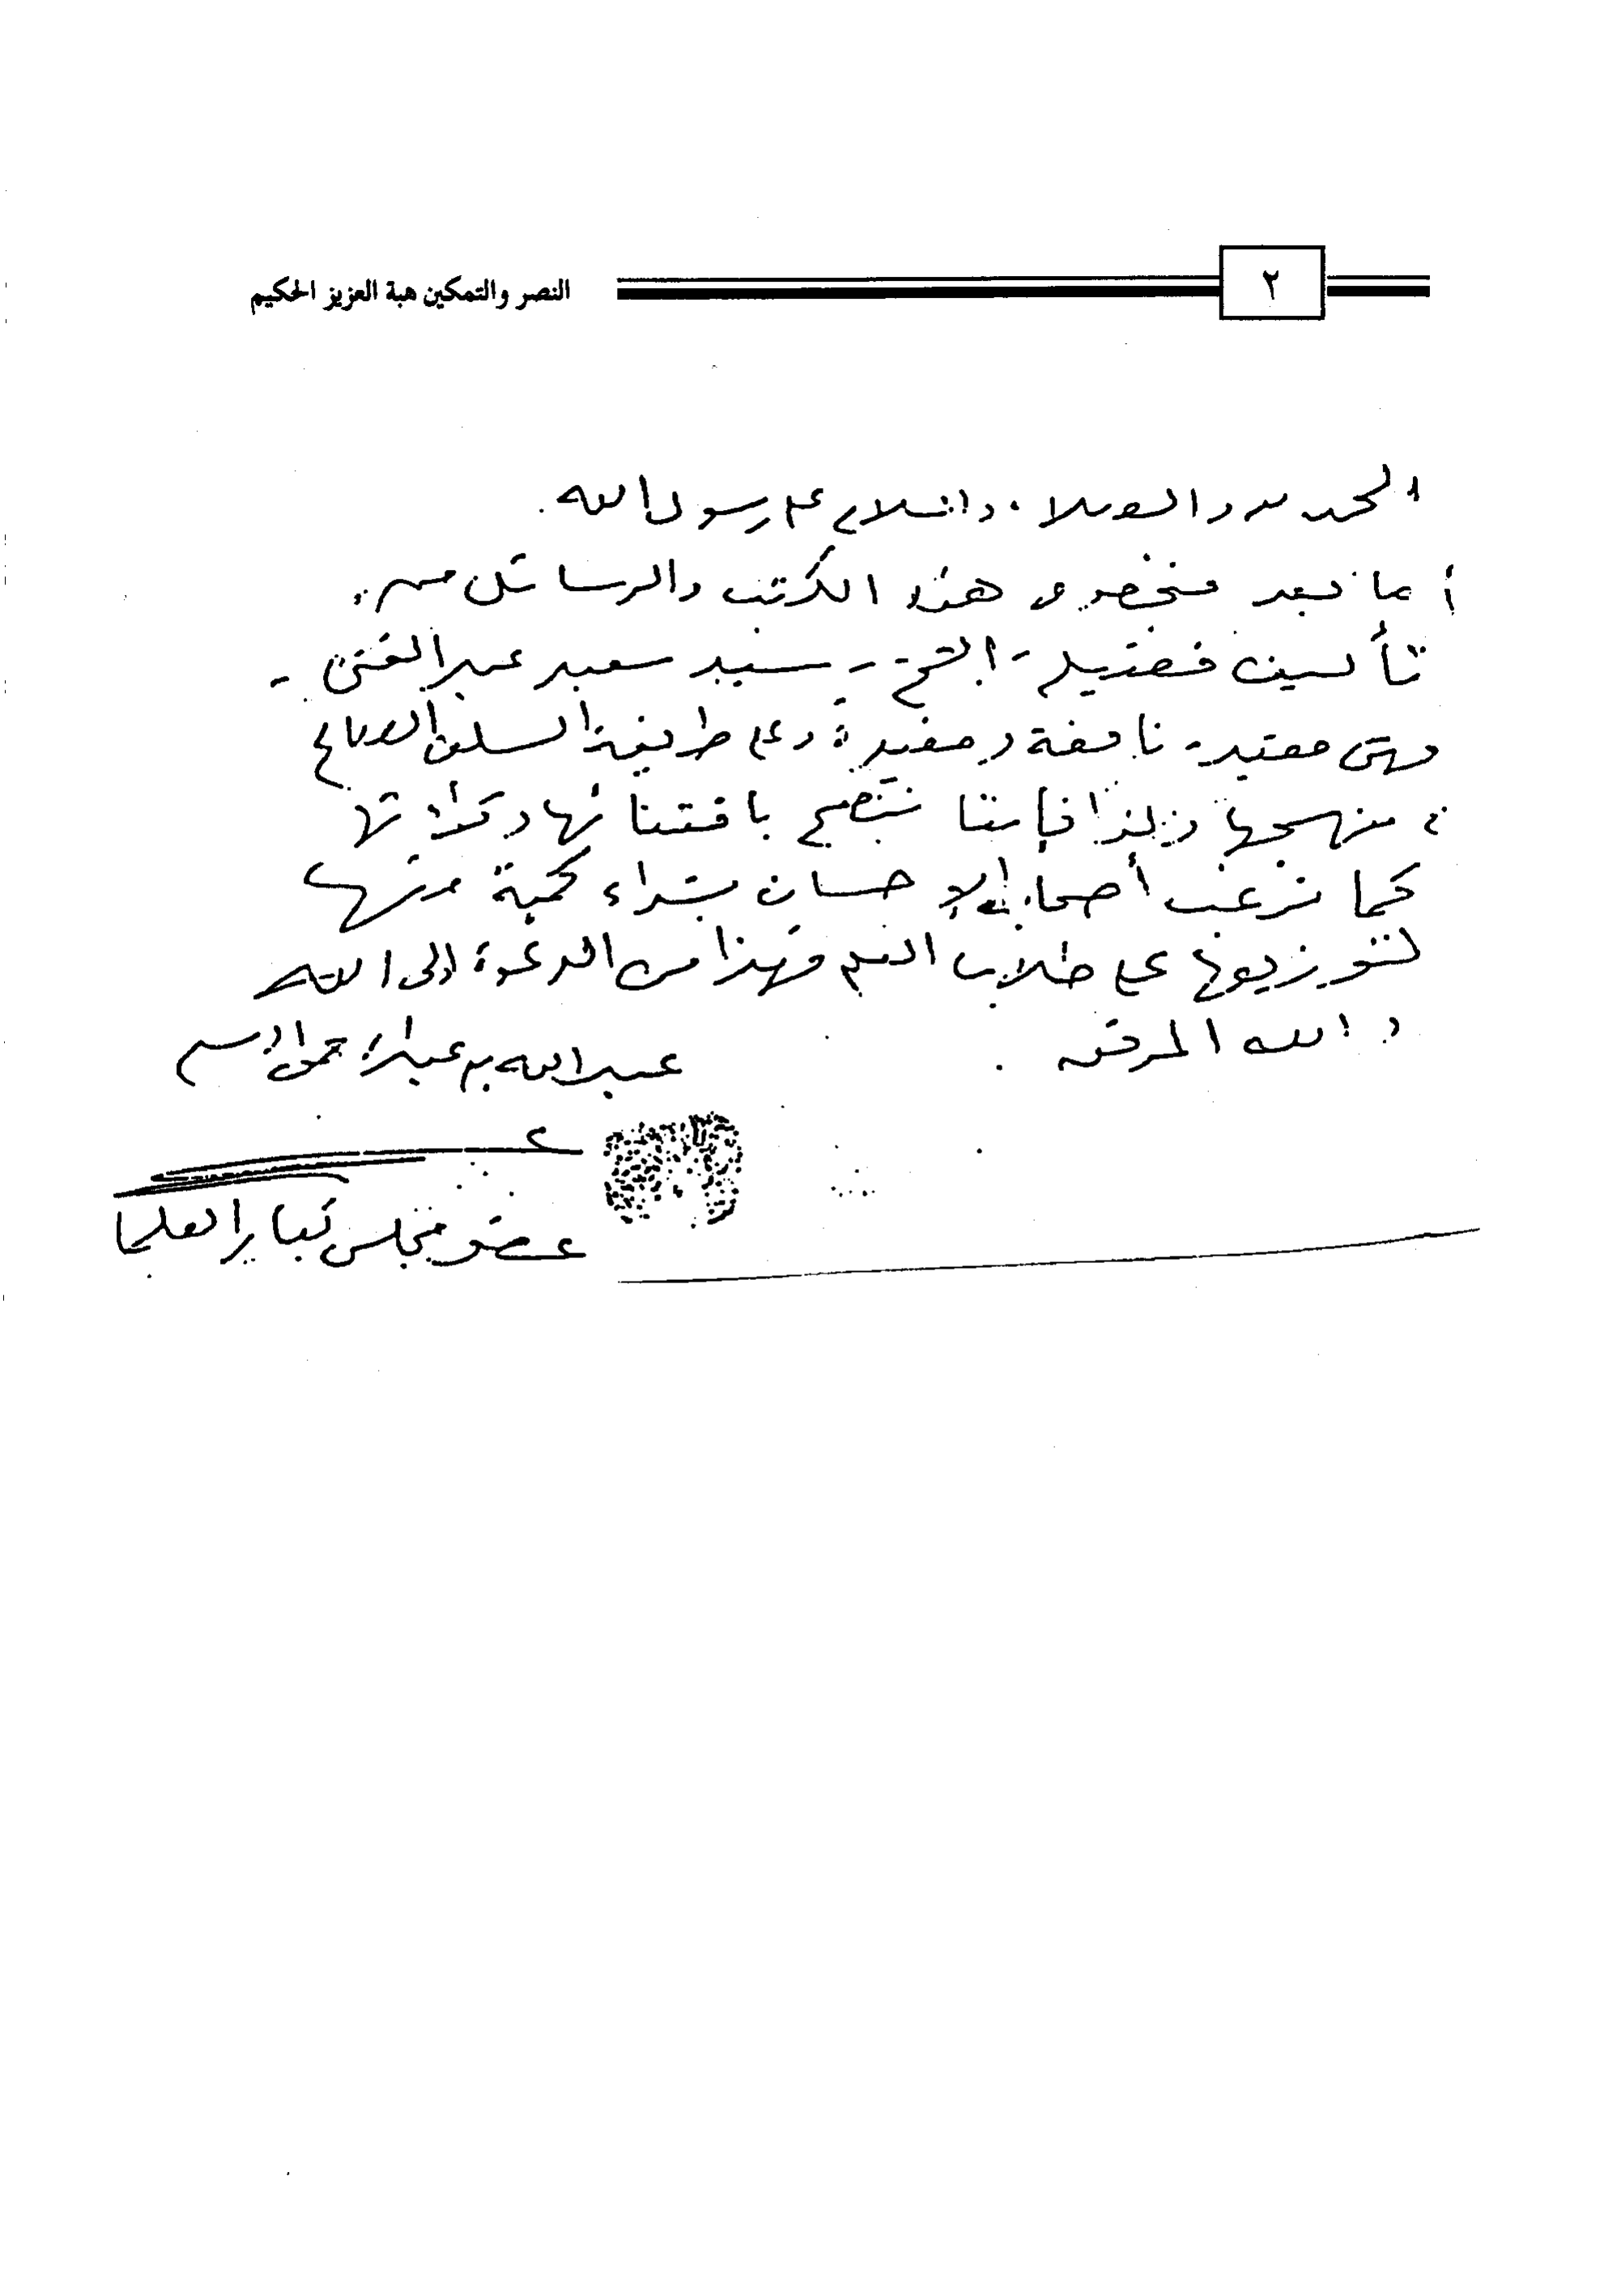 ٢
النصر والتمكين هبة العزيز الحكيم
الحمد لله والصلاة والسلام على رسول الله.
أما بعد هذه الكتب والرسائل من
تأليف فضيلة الشيخ - سيد سعيد عبد الغني -
وهي مفيدة نافعة ومفيدة وعلى طريقة السلف الصالح
في منهجها ولذا فإننا ننصح باقتنائها وقراءتها
كما نرغب أصحاب الإحسان بشراء كمية منها
لتوزيعها على طلاب العلم فهذا من الدعوة إلى الله
والله الموفق.
عبد الله بن عبد الرحمن
عضو مجلس كبار العلما